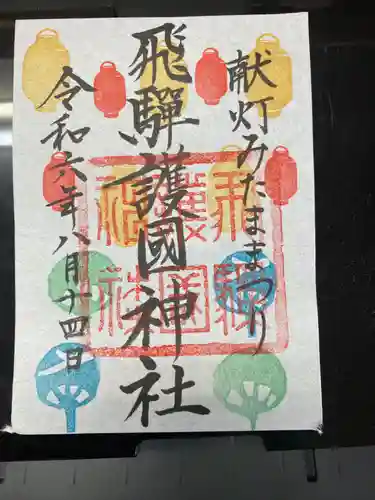 献灯みたままつり
飛騨護國神社
令和六年八月十四日